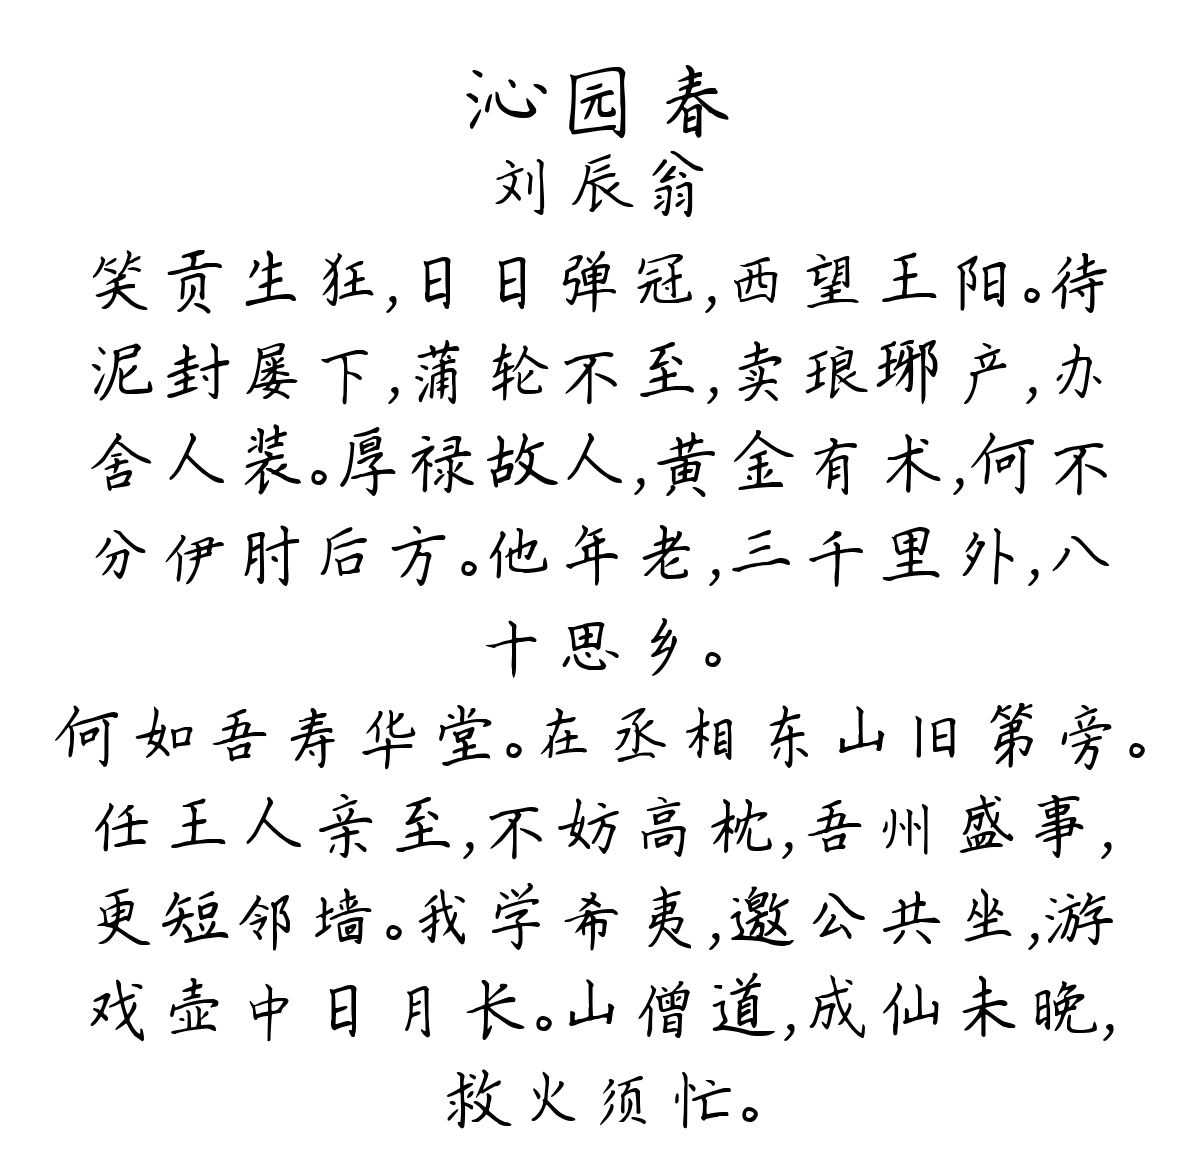 沁园春
刘辰翁
笑贡生狂,日日弹冠,西望王阳。待
泥封屡下,蒲轮不至,卖琅琊产,办
舍人装。厚禄故人,黄金有术,何不
分伊肘后方。他年老,三千里外,八
十思乡。
何如吾寿华堂。在丞相东山旧第旁。
任王人亲至,不妨高枕,吾州盛事,
更短邻墙。我学希夷,邀公共坐,游
戏壶中日月长。山僧道,成仙未晚,
救火须忙。